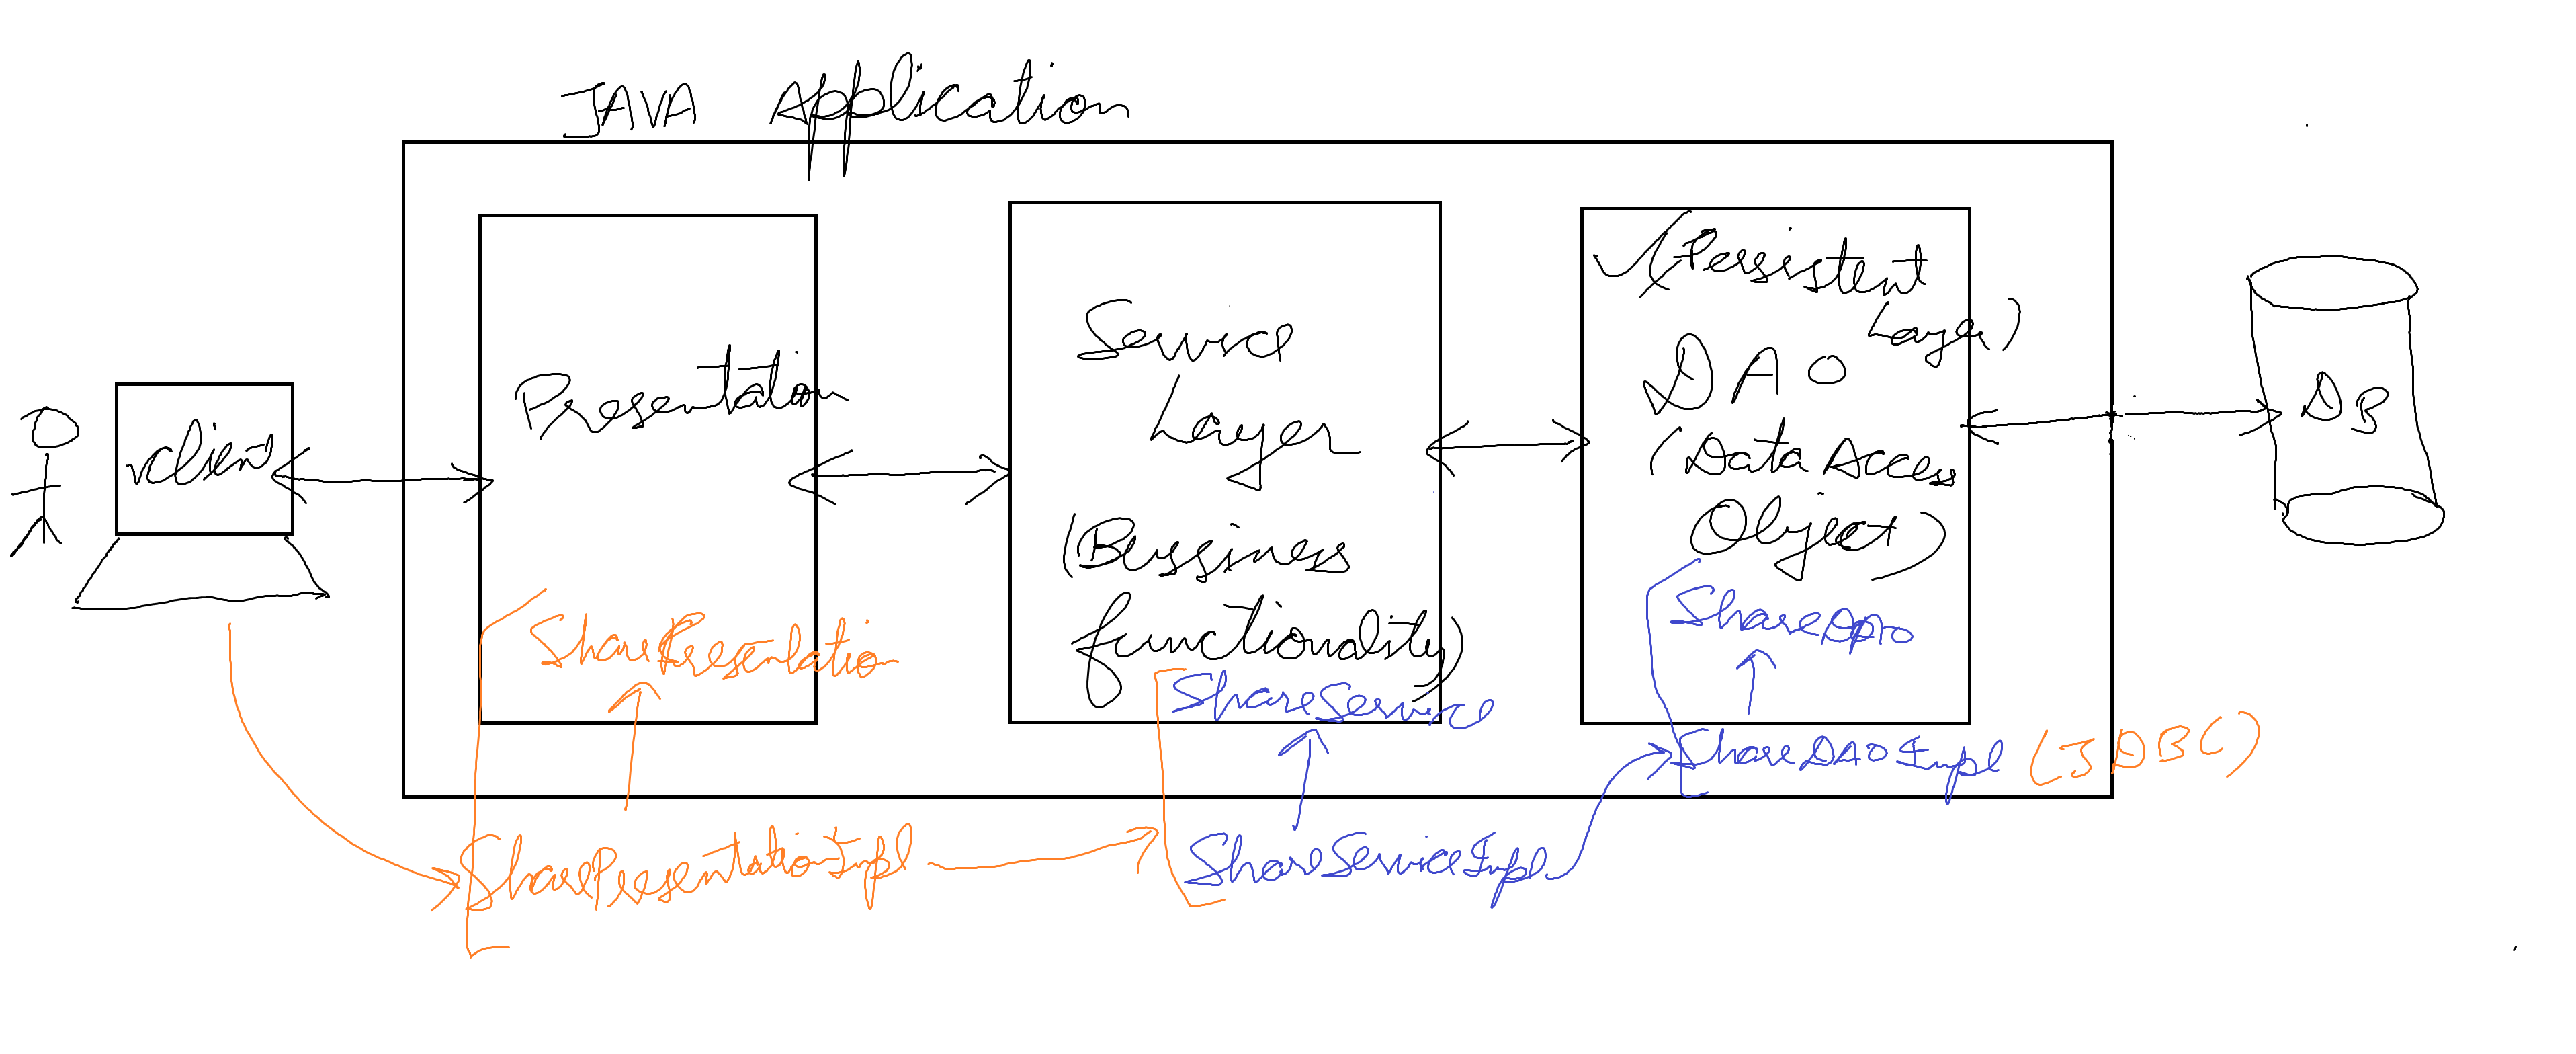 JAVA Application
client
Presentation
SharePresentation
SharePresentationImpl
Service
Layer
(Bussiness
functionality)
ShareService
ShareServiceImpl
(Persistent
Layer)
DAO
(Data Access
Object)
ShareDAO
ShareDAOImpl (JDBC)
DB